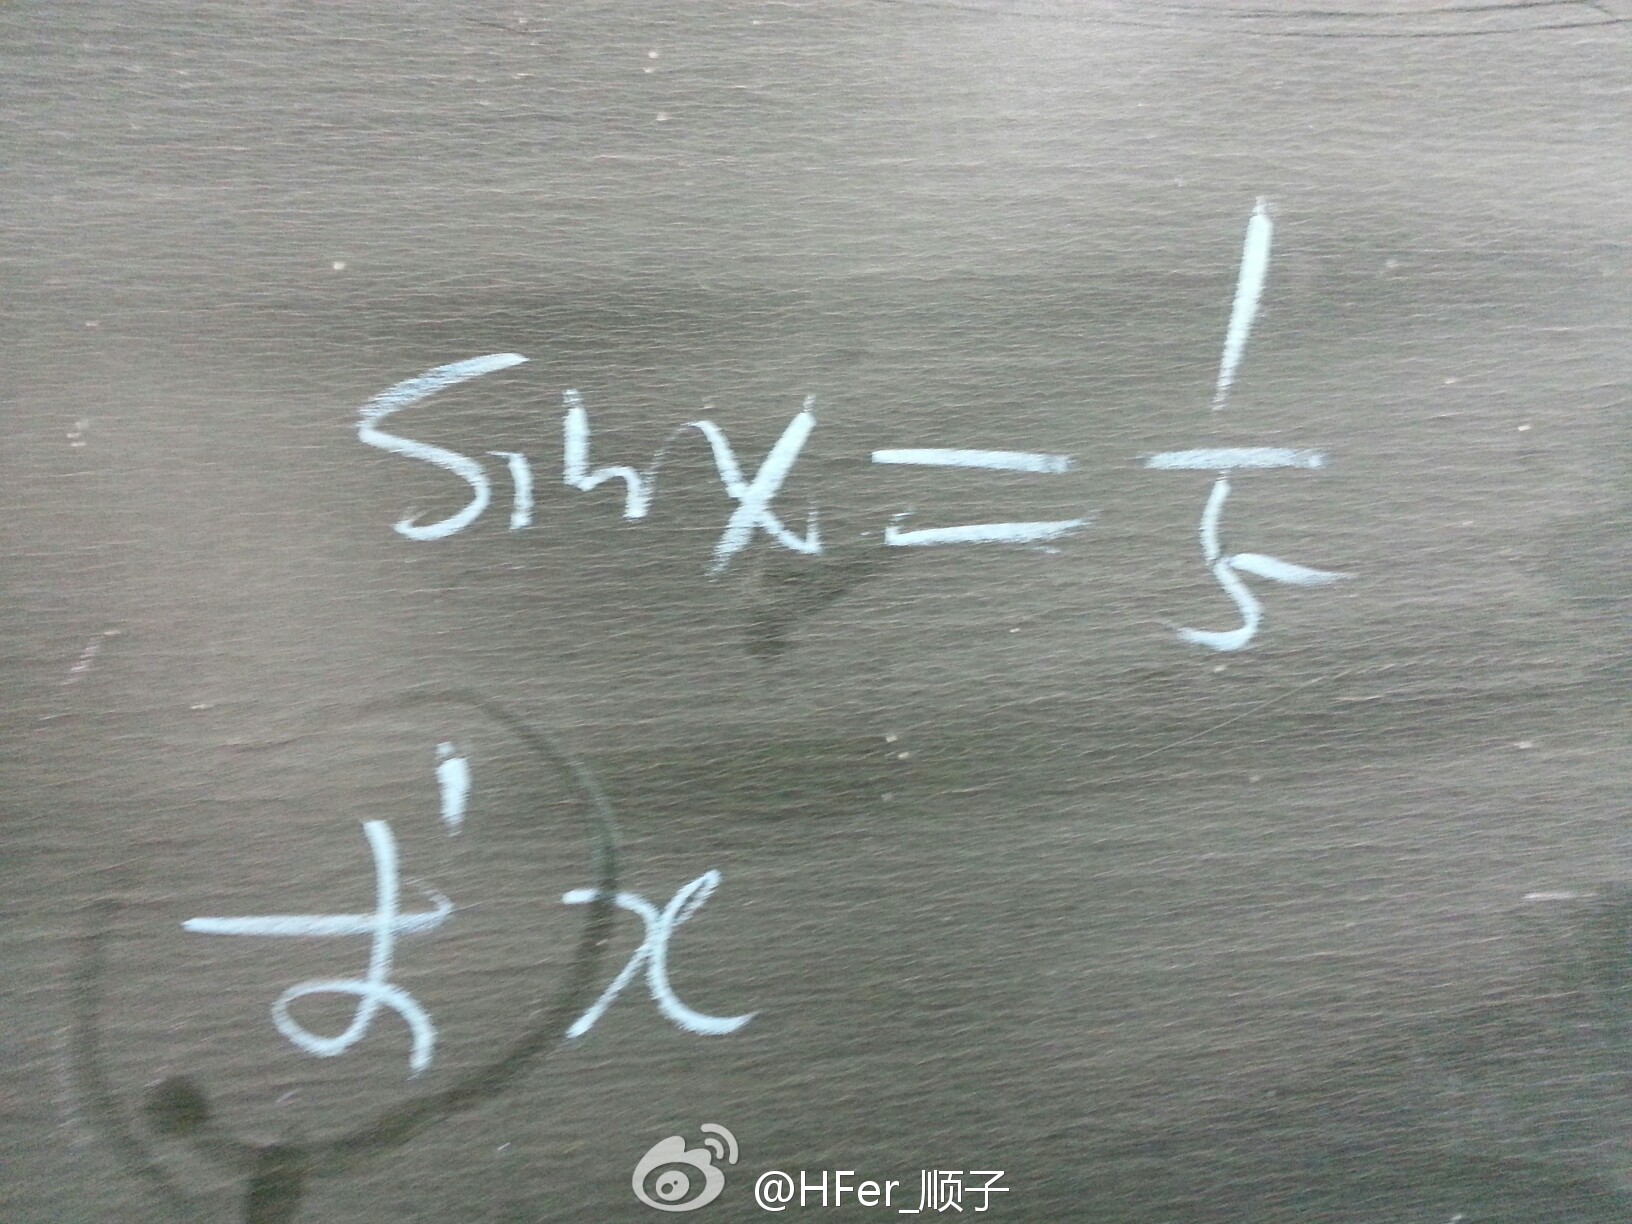 sinx=1/5
求x
@HFer_顺子